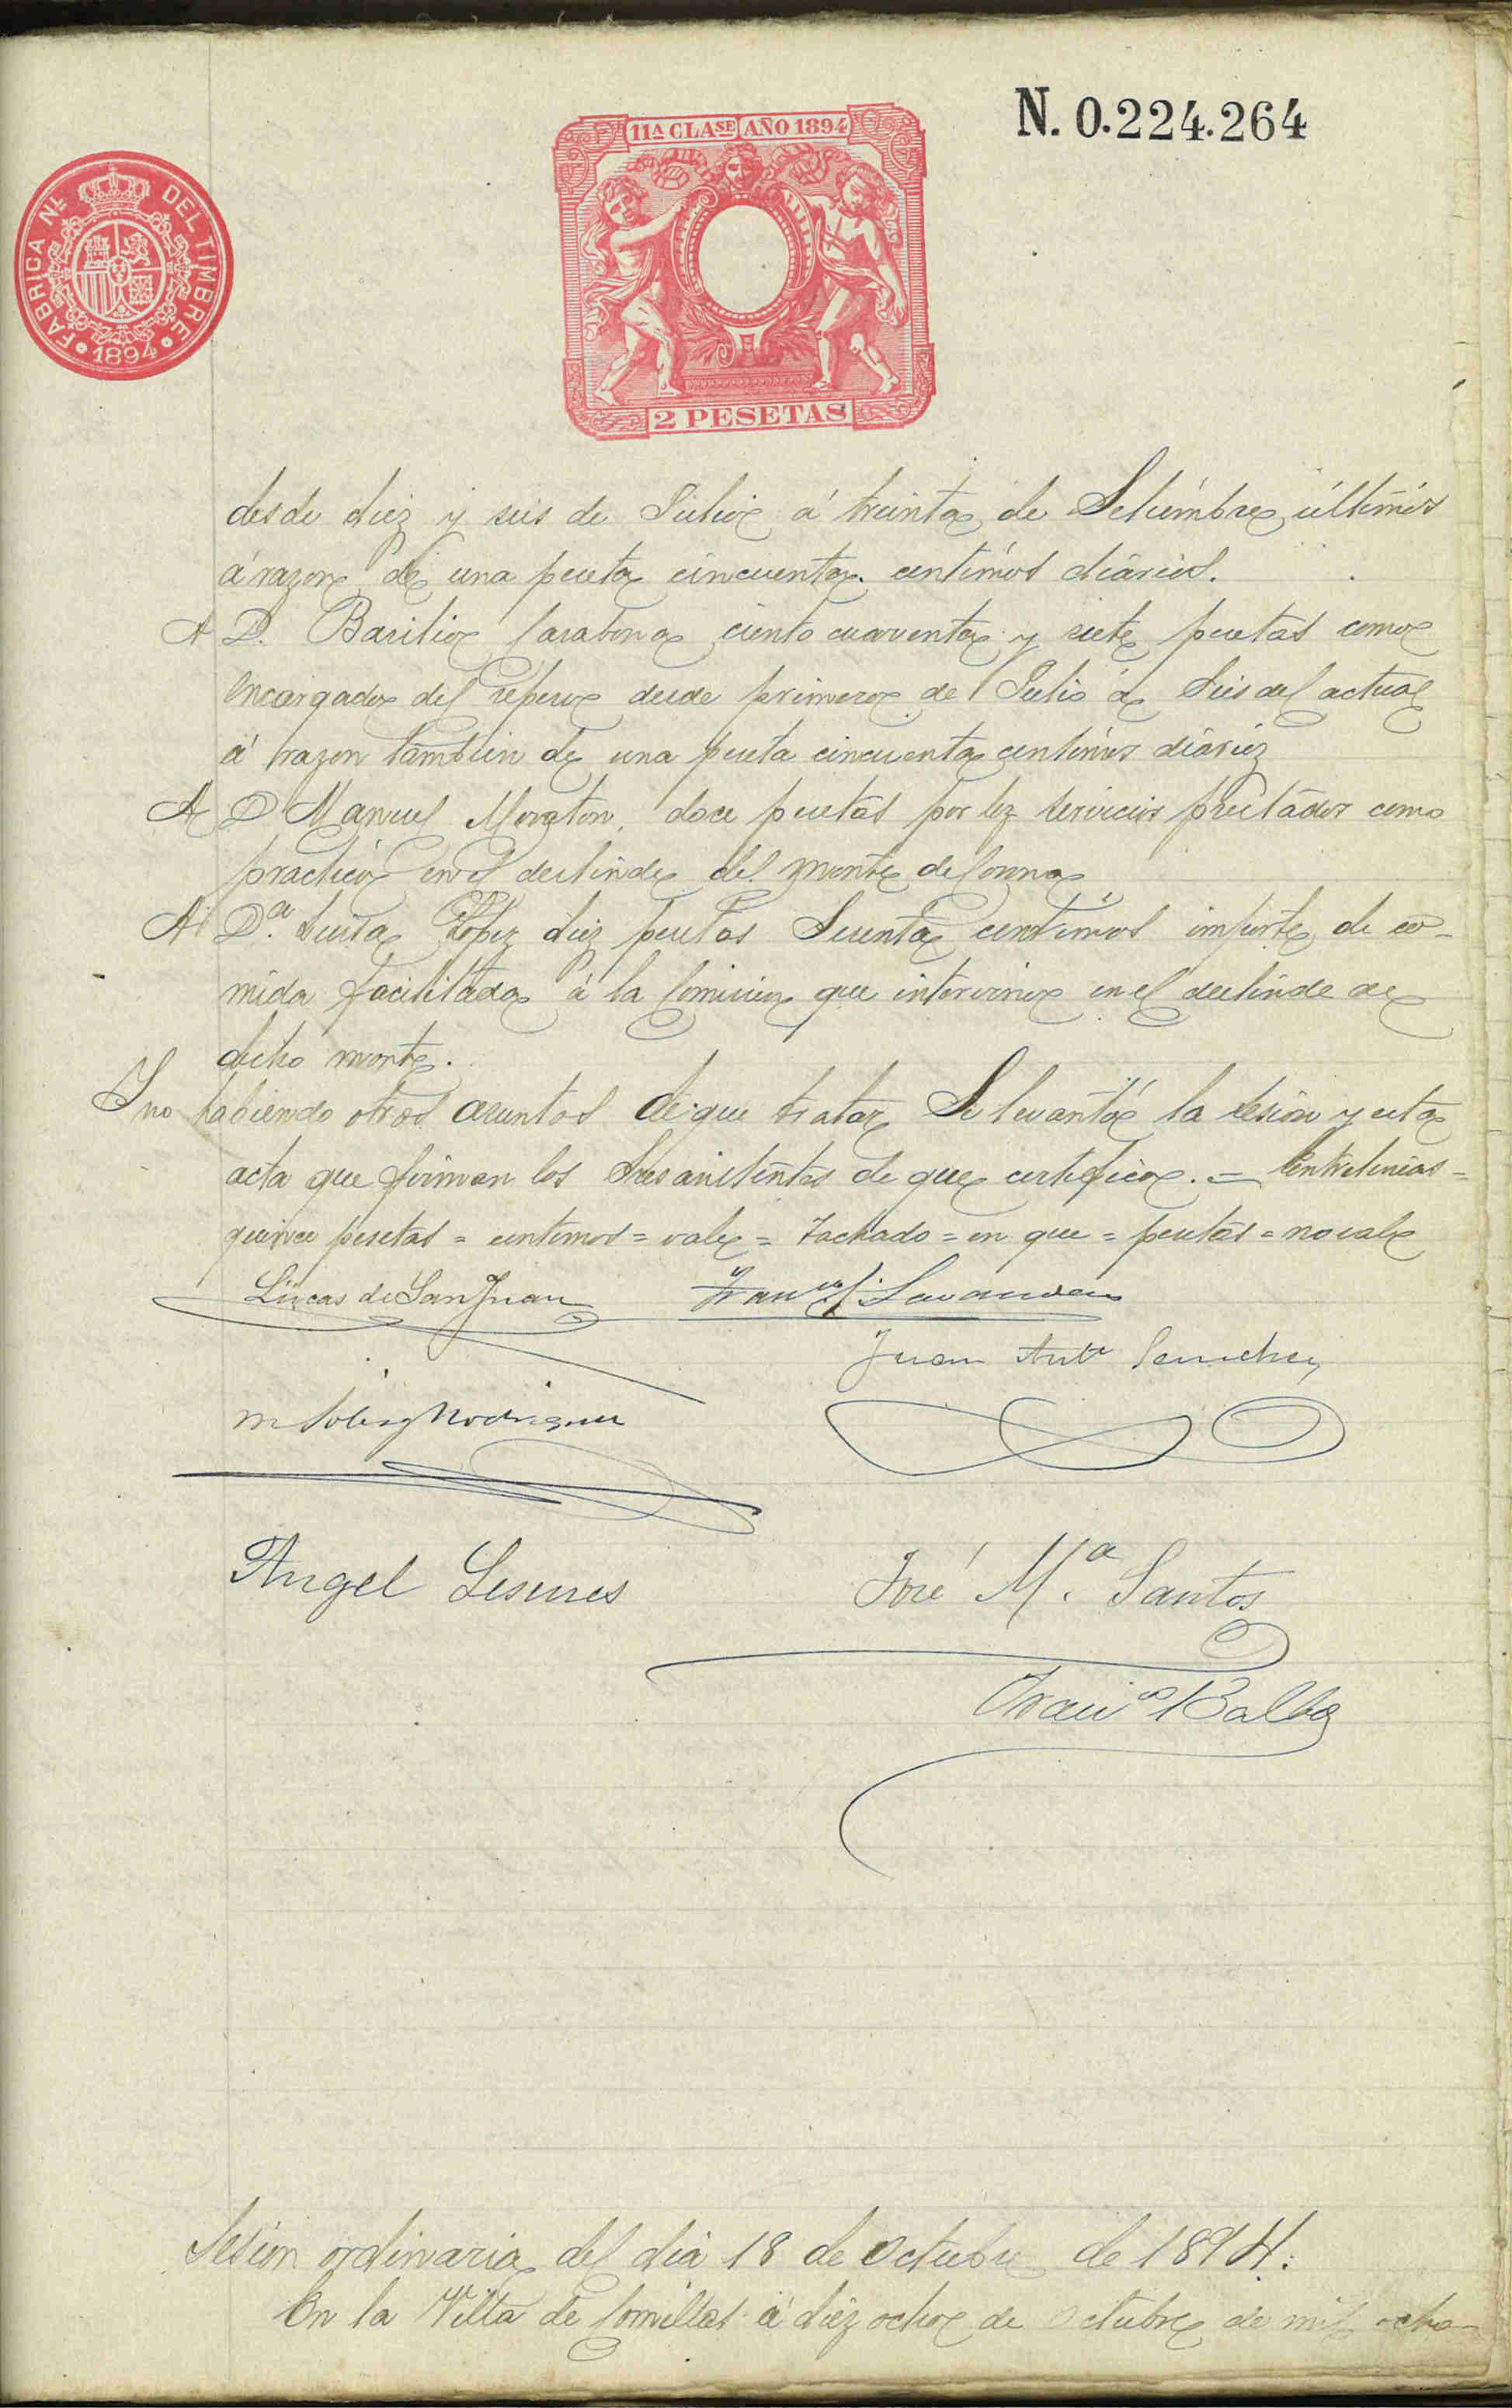 N. 0.224.264
11ª CLASE AÑO 1894
FABRICA NL. DEL TIMBRE
1894
2 PESETAS
desde diez y seis de Julio á treinta de Setiembre últimos
á razon de una peseta cincuenta centimos diarios.
A D. Basilio Carabona ciento cuarenta y siete pesetas como
encargado del repeso desde primero de Julio á seis del actual
á razon tambien de una peseta cincuenta centimos diarios
A D Manuel doce pesetas por los servicios prestados como
practico en el deslinde del monte de Corona
A Dª. Luisa Lopez diez pesetas sesenta centimos importe de co-
mida facilitada á la Comision que intervino en el deslinde de
dicho monte.
Y no habiendo otros asuntos de que tratar se levantó la sesion y esta
acta que firman los Sres asistentes de que certifico. = Entrelineas =
quince pesetas = centimos = vale = Tachado = en que = pesetas = no vale
Lucas de San Juan
Juan Antº Sanchez
Rodriguez
Angel
José Mª. Santos
Balbas
Sesion ordinaria del dia 18 de Octubre de 1894:
En la Villa de Comillas á diez ocho de Octubre de mil ocho-